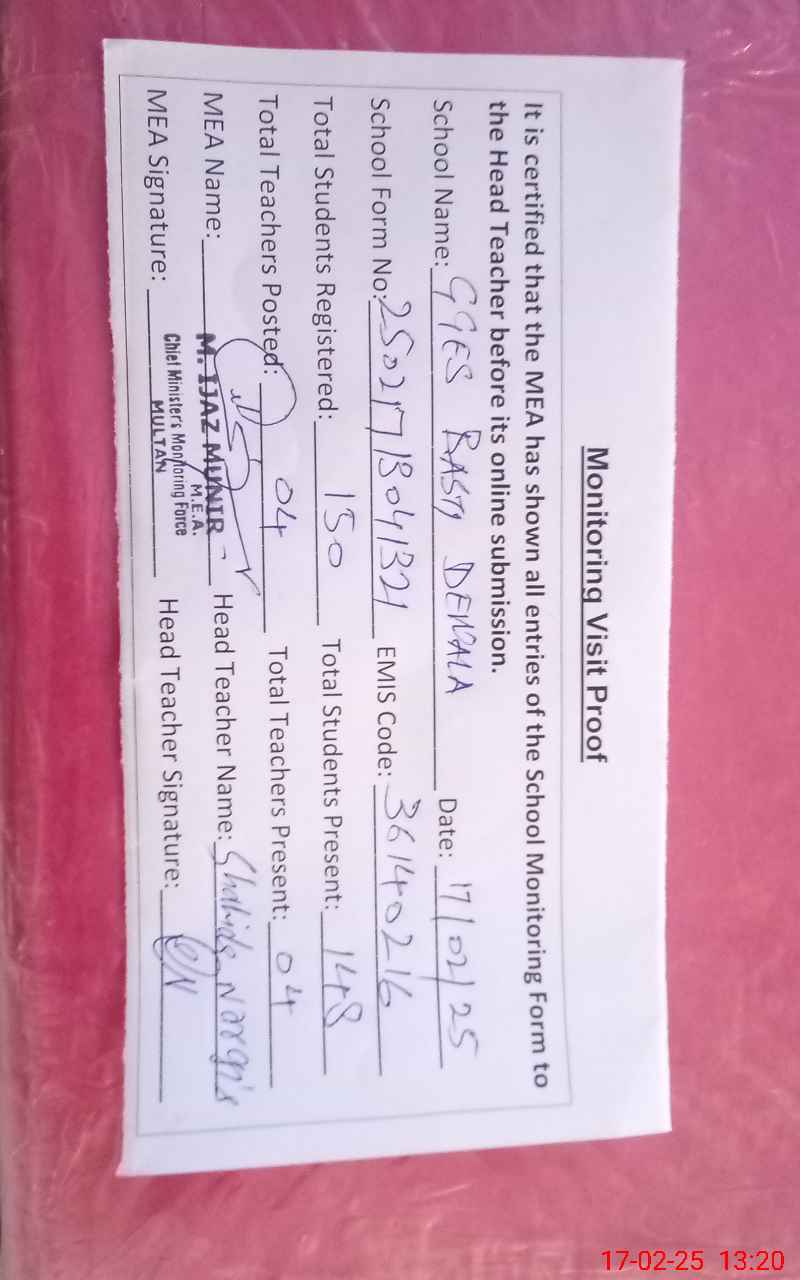 Monitoring Visit Proof
It is certified that the MEA has shown all entries of the School Monitoring Form to
the Head Teacher before its online submission.
School Name: GGES BASTI DEWALA Date: 17/02/25
School Form No: 25021713041321 EMIS Code: 36140216
Total Students Registered: 150 Total Students Present: 148
Total Teachers Posted: 04 Total Teachers Present: 04
MEA Name: M. IJAZ MUNIR Head Teacher Name: Shahida Nargis
M.E.A.
Chief Minister's Monitoring Force
MULTAN
MEA Signature: Head Teacher Signature:
17-02-25 13:20